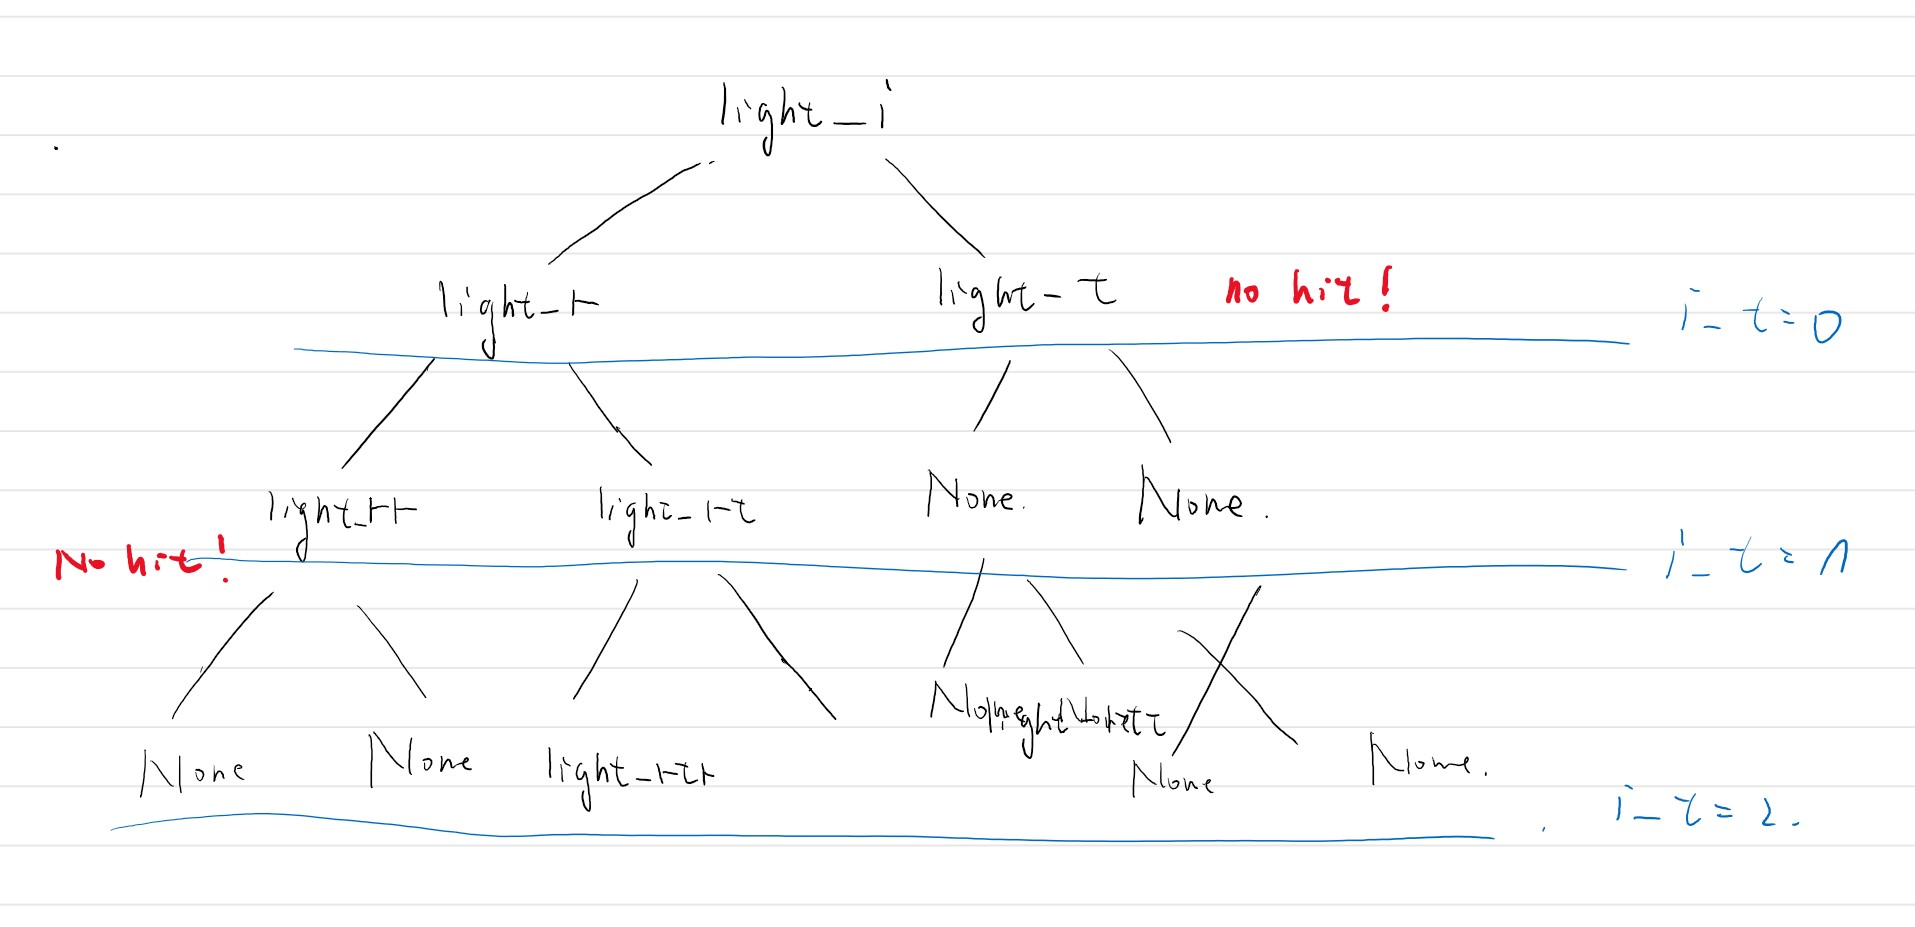 light_i
light_r
light_t no hit!
i_t=0
light_rr light_rt None. None.
No hit!
i_t=1
None None light_rtr None None.
i_t=2.